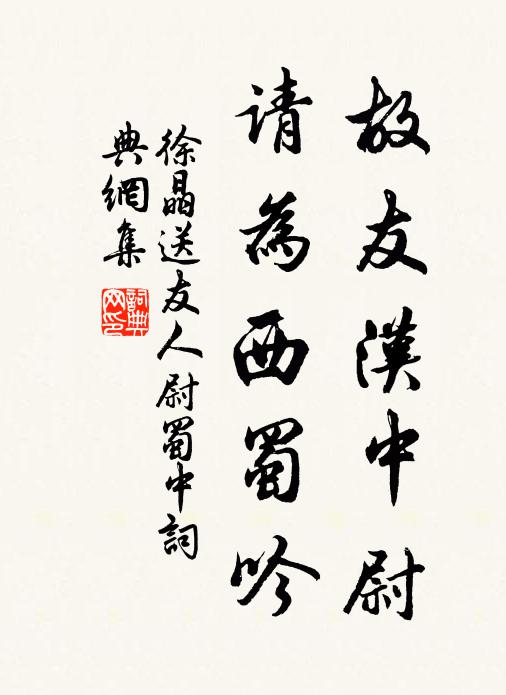 故友漢中尉
請為西蜀吟
徐晶送友人尉蜀中詞
典網集
詞典網印